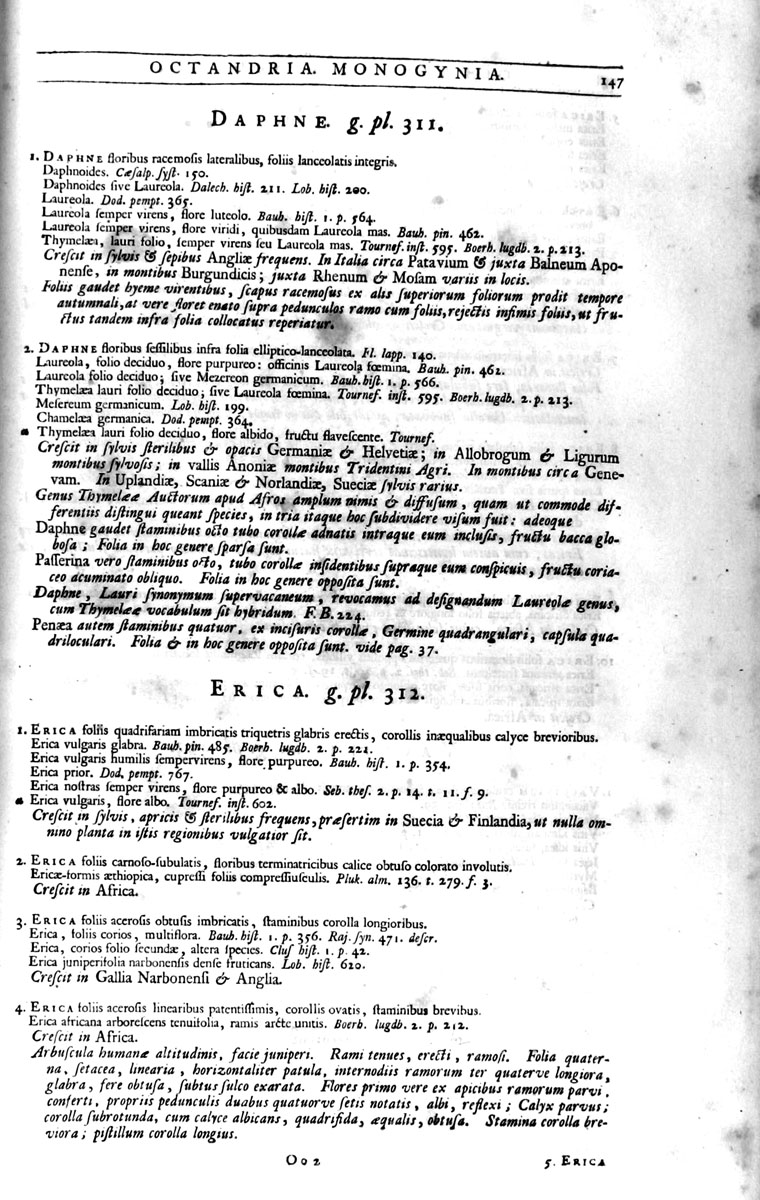 OCTANDRIA. MONOGYNIA. 147
DAPHNE. g. pl. 311.
1. DAPHNE floribus racemosis lateralibus, foliis lanceolatis integris.
Daphnoides. Cæsalp. syst. 150.
Daphnoides sive Laureola. Dalech. hist. 211. Lob. hist. 200.
Laureola. Dod. pempt. 365.
Laureola semper virens, flore luteolo. Bauh. hist. 1. p. 564.
Laureola semper virens, flore viridi, quibusdam Laureola mas. Bauh. pin. 462.
Thymelæa, lauri folio, semper virens seu Laureola mas. Tournef. inst. 595. Boerh. lugdb. 2. p. 213.
Crescit in sylvis & sepibus Angliæ frequens. In Italia circa Patavium & juxta Balneum Apo-
nense, in montibus Burgundicis; juxta Rhenum & Mosam variis in locis.
Foliis gaudet hyeme virentibus, scapus racemosus ex alis superiorum foliorum prodit tempore
autumnali, at vere floret enato supra pedunculos ramo cum foliis, rejectis infimis foliis, ut fru-
ctus tandem infra folia collocatus reperiatur.
2. DAPHNE floribus sessilibus infra folia elliptico-lanceolata. Fl. lapp. 140.
Laureola, folio deciduo, flore purpureo: officinis Laureola fœmina. Bauh. pin. 462.
Laureola folio deciduo; sive Mezereon germanicum. Bauh. hist. 1. p. 566.
Thymelæa lauri folio deciduo; sive Laureola fœmina. Tournef. inst. 595. Boerh. lugdb. 2. p. 213.
Mesereum germanicum. Lob. hist. 199.
Chamelæa germanica. Dod. pempt. 364.
* Thymelæa lauri folio deciduo, flore albido, fructu flavescente. Tournef.
Crescit in sylvis sterilibus & opacis Germaniæ & Helvetiæ; in Allobrogum & Ligurum
montibus sylvosis; in vallis Anoniæ montibus Tridentini Agri. In montibus circa Gene-
vam. In Uplandiæ, Scaniæ & Norlandiæ, Sueciæ sylvis rarius.
Genus Thymelææ Auctorum apud Afros amplum nimis & diffusum, quam ut commode dif-
ferentiis distingui queant species, in tria itaque hoc subdividere visum fuit: adeoque
Daphne gaudet staminibus octo tubo corollæ adnatis intraque eum inclusis, fructu bacca glo-
bosa; Folia in hoc genere sparsa sunt.
Passerina vero staminibus octo, tubo corollæ insidentibus supraque eum conspicuis, fructu coria-
ceo acuminato obliquo. Folia in hoc genere opposita sunt.
Daphne, Lauri synonymum supervacaneum, revocamus ad designandum Laureolæ genus,
cum Thymelææ vocabulum sit hybridum. F. B. 224.
Penæa autem staminibus quatuor, ex incisuris corollæ, Germine quadrangulari, capsula qua-
driloculari. Folia & in hoc genere opposita sunt. vide pag. 37.
ERICA. g. pl. 312.
1. ERICA foliis quadrifariam imbricatis triquetris glabris erectis, corollis inæqualibus calyce brevioribus.
Erica vulgaris glabra. Bauh. pin. 485. Boerh. lugdb. 2. p. 221.
Erica vulgaris humilis sempervirens, flore purpureo. Bauh. hist. 1. p. 354.
Erica prior. Dod. pempt. 767.
Erica nostras semper virens, flore purpureo & albo. Seb. thes. 2. p. 14. t. 11. f. 9.
* Erica vulgaris, flore albo. Tournef. inst. 602.
Crescit in sylvis, apricis & sterilibus frequens, præsertim in Suecia & Finlandia, ut nulla om-
nino planta in istis regionibus vulgatior sit.
2. ERICA foliis carnoso-subulatis, floribus terminatricibus calice obtuso colorato involutis.
Ericæ-formis æthiopica, cupressi foliis compressiusculis. Pluk. alm. 136. t. 279. f. 3.
Crescit in Africa.
3. ERICA foliis acerosis obtusis imbricatis, staminibus corolla longioribus.
Erica, foliis corios, multiflora. Bauh. hist. 1. p. 356. Raj. syn. 471. descr.
Erica, corios folio secundæ, altera species. Clus hist. 1. p. 42.
Erica juniperifolia narbonensis dense fruticans. Lob. hist. 620.
Crescit in Gallia Narbonensi & Anglia.
4. ERICA foliis acerosis linearibus patentissimis, corollis ovatis, staminibus brevibus.
Erica africana arborescens tenuifolia, ramis arcte unitis. Boerh. lugdb. 2. p. 212.
Crescit in Africa.
Arbuscula humanæ altitudinis, facie juniperi. Rami tenues, erecti, ramosi. Folia quater-
na, setacea, linearia, horizontaliter patula, internodiis ramorum ter quaterve longiora,
glabra, fere obtusa, subtus sulco exarata. Flores primo vere ex apicibus ramorum parvi,
conferti, propriis pedunculis duabus quatuorve setis notatis, albi, reflexi; Calyx parvus;
corolla subrotunda, cum calyce albicans, quadrifida, æqualis, obtusa. Stamina corolla bre-
viora; pistillum corolla longius.
Ooo 2 5. ERICA